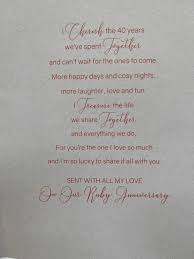 I Cherish the 40 years
we've spent Together
and can't wait for the ones to come.
More happy days and cosy nights,
more laughter, love and fun
I Treasure the life
we share Together
and everything we do,
For you're the one I love so much
and I'm so lucky to share it all with you.
SENT WITH ALL MY LOVE
On Our Ruby Anniversary